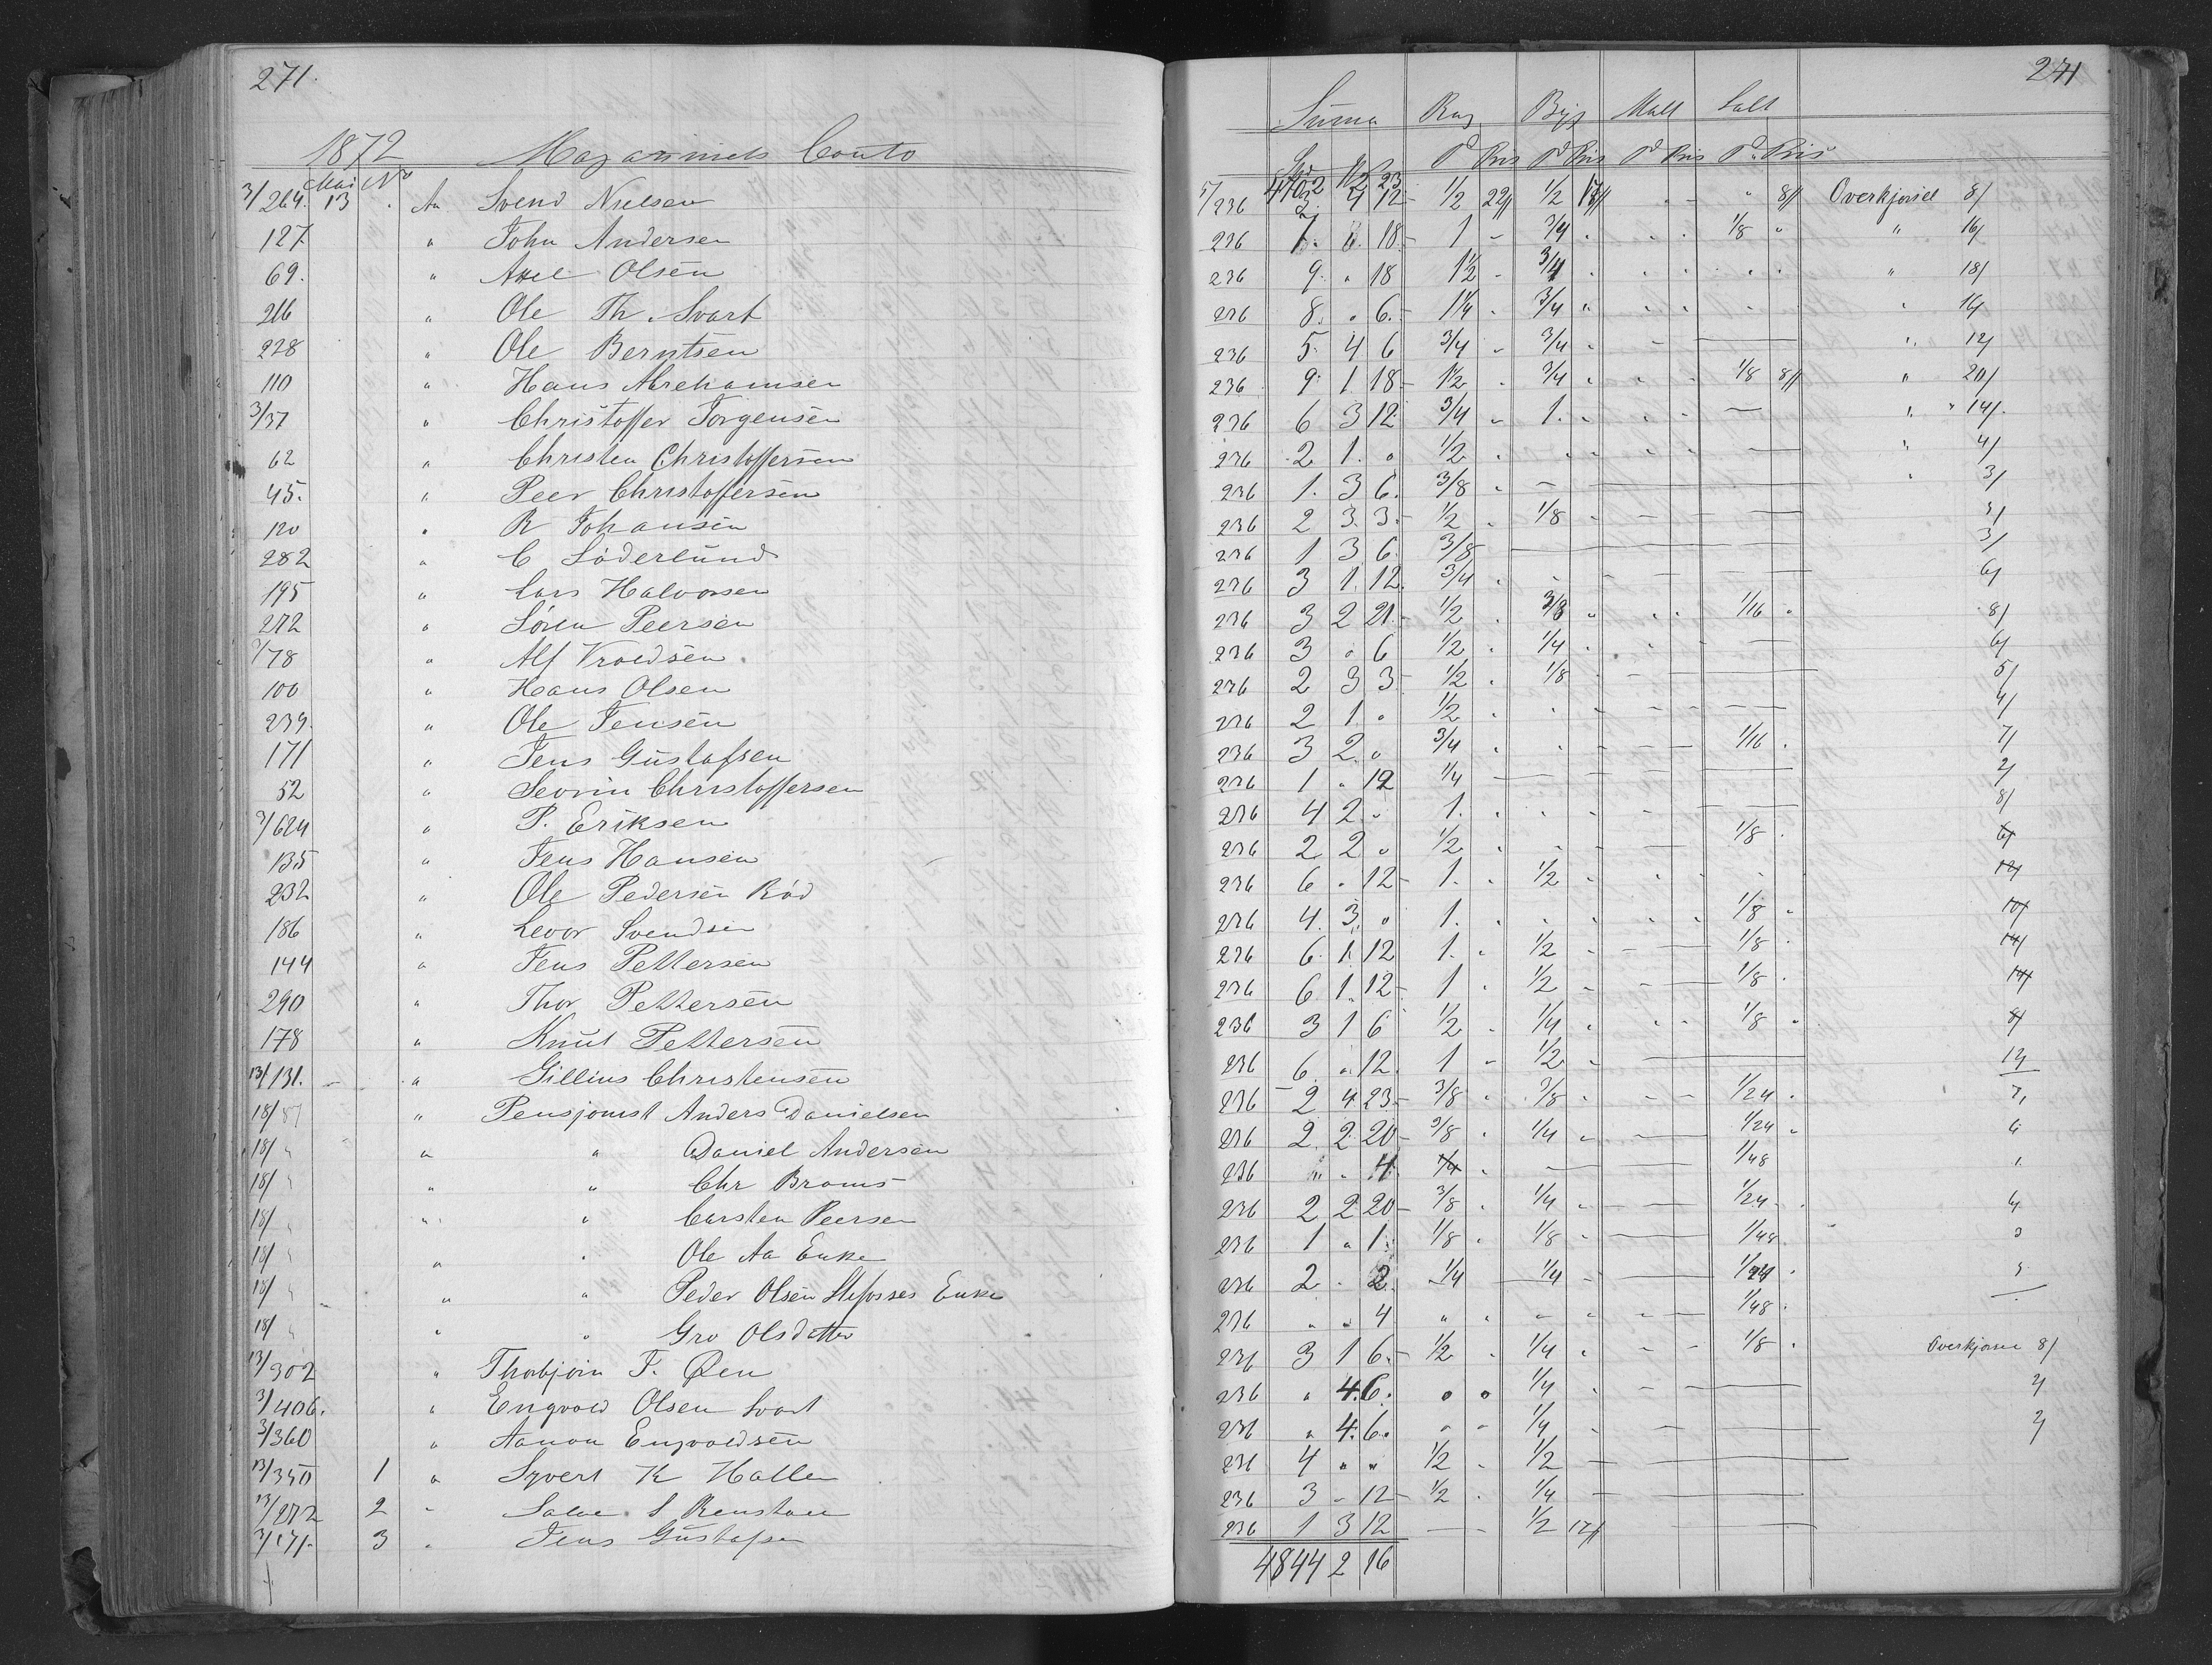 271.
241
Suma Rug Byg Malt Salt
1872 Magasinets Conto
Pd Pris Pd Pris Pd Pris Pd Pris
Mai No
4702 1/2 23
3/264. 13 An Svend Nielsen 5/236 3 4 12 1/2 22/ 1/2 17/ " 8/ Overkjørsel 8/
127 " John Andersen 236 7. 3. 18 1 3/4 1/8 " " 16/
69. " Axel Olsen 236 9. " 18 1 1/2 3/4 " 18/
216 " Ole Th. Svart 236 8. " 6. 1 1/4 3/4 " 16/
228 " Ole Berntsen 236 5. 4 6 3/4 3/4 " 12/
110 " Hans Abrehamsen 236 9. 1 18 1 1/2 3/4 1/8 8/ " 20/
3/37 " Christoffer Jørgensen 236 6 3 12 3/4 1. " 14/
62 " Christen Christoffersen 236 2 1. " 1/2 " 4/
45. " Peer Christoffersen 236 1. 3 6. 3/8 " 3/
120 " R Johansen 236 2 3. 3. 1/2 1/8 5/
282 " C Söderlund 236 1 3 6. 3/8 3/
195 " Lars Halvorsen 236 3 1. 12. 3/4 6/
272 " Sören Peersen 236 3 2 21. 1/2 3/8 1/16 8/
3/78 " Alf Vroldsen 236 3 " 6 1/2 1/4 6/
100 " Hans Olsen 236 2 3 3 1/2 1/8 5/
239. " Ole Jensen 236 2 1. " 1/2 4/
171 " Jens Gustafsen 236 3 2. " 3/4 1/16 7/
52 " Sevrin Christoffersen 236 1 " 12 1/4 2/
3/624 " P. Eriksen 236 4 2 " 1. 8/
135 " Jens Hansen 236 2 2 " 1/2 1/8 6/
232 " Ole Pedersen Röd 236 6 " 12 1. 1/2 12/
186 " Levor Svendsen 236 4. 3. " 1. 1/8 10/
144 " Jens Pettersen 236 6. 1. 12 1. 1/2 1/8 14/
290 " Thor Pettersen 236 6 1. 12 1 1/2 1/8 14/
178 " Knut Pettersen 236 3 1 6 1/2 1/4 1/8 8/
13/131. " Gillius Christensen 236 6. " 12. 1 1/2 12/
18/87 " Pensjonist Anders Danielsen 236 2 4 23 3/8 3/8 1/24 7,
18/ " " " Daniel Andersen 236 2. 2 20 3/8 1/4 1/24 6
18/ " " " Chr Broms 236 " " 4 1/4 1/48 1.
18/ " " " Carsten Peersen 236 2 2 20 3/8 1/4 1/24 6
18/ " " " Ole Aa Enke 236 1 " 1. 1/8 1/8 1/48. 3
18/ " " " Peder Olsen Enke 236 2 . 2 1/4 1/4 1/24 5
18/ " " " Gro Olsdatter 236 " " 4 " " 1/48.
13/302 " Thorbjørn J. Øen 236 3 1 6. 1/2 1/4 1/8 Overkjørsel 8/
3/406. " Engvold Olsen Svart 236 " 4. 6. 1/4 2/
3/360 " Aanon Engvoldsen 236 " 4. 6. 1/4 2/
13/350 1 " Syvert K Halle 236 4 " " 1/2 1/2
13/272 2 " Salve S Renstøl 236 3 " 12 1/2 1/4
3/171. 3 " Jens Gustafsen 236 1 3 12 1/2 17/
4844 2 16